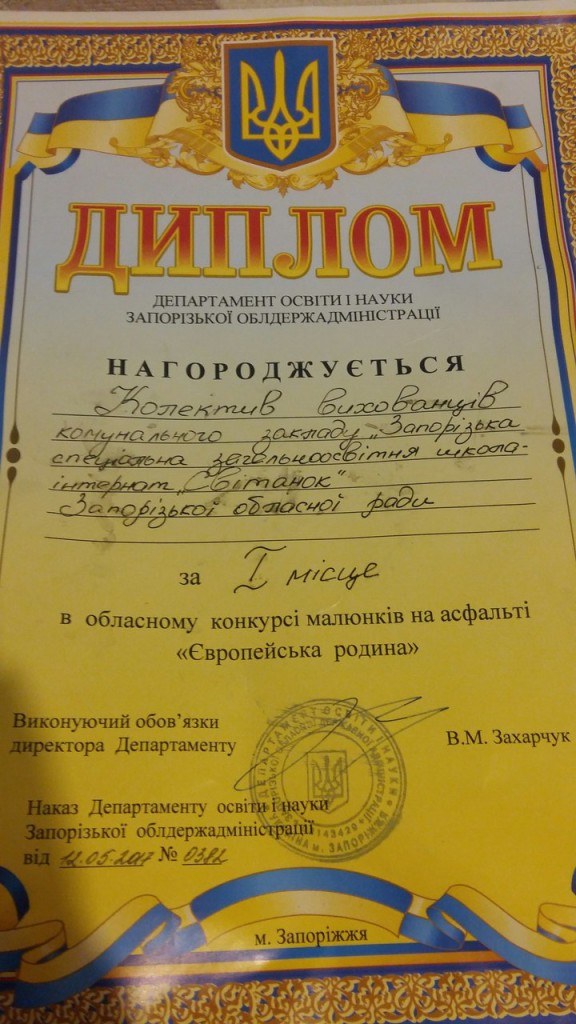 ДИПЛОМ
ДЕПАРТАМЕНТ ОСВІТИ І НАУКИ
ЗАПОРІЗЬКОЇ ОБЛДЕРЖАДМІНІСТРАЦІЇ
НАГОРОДЖУЄТЬСЯ
Колектив вихованців
комунального закладу „Запорізька
спеціальна загальноосвітня школа-
інтернат „Світанок"
Запорізької обласної ради
за І місце
в обласному конкурсі малюнків на асфальті
«Європейська родина»
Виконуючий обов’язки
директора Департаменту
В.М. Захарчук
ДЕПАРТАМЕНТ ОСВІТИ І НАУКИ
Наказ Департаменту освіти і науки
Запорізької облдержадміністрації
від 12.05.2017 № 0382
м. Запоріжжя